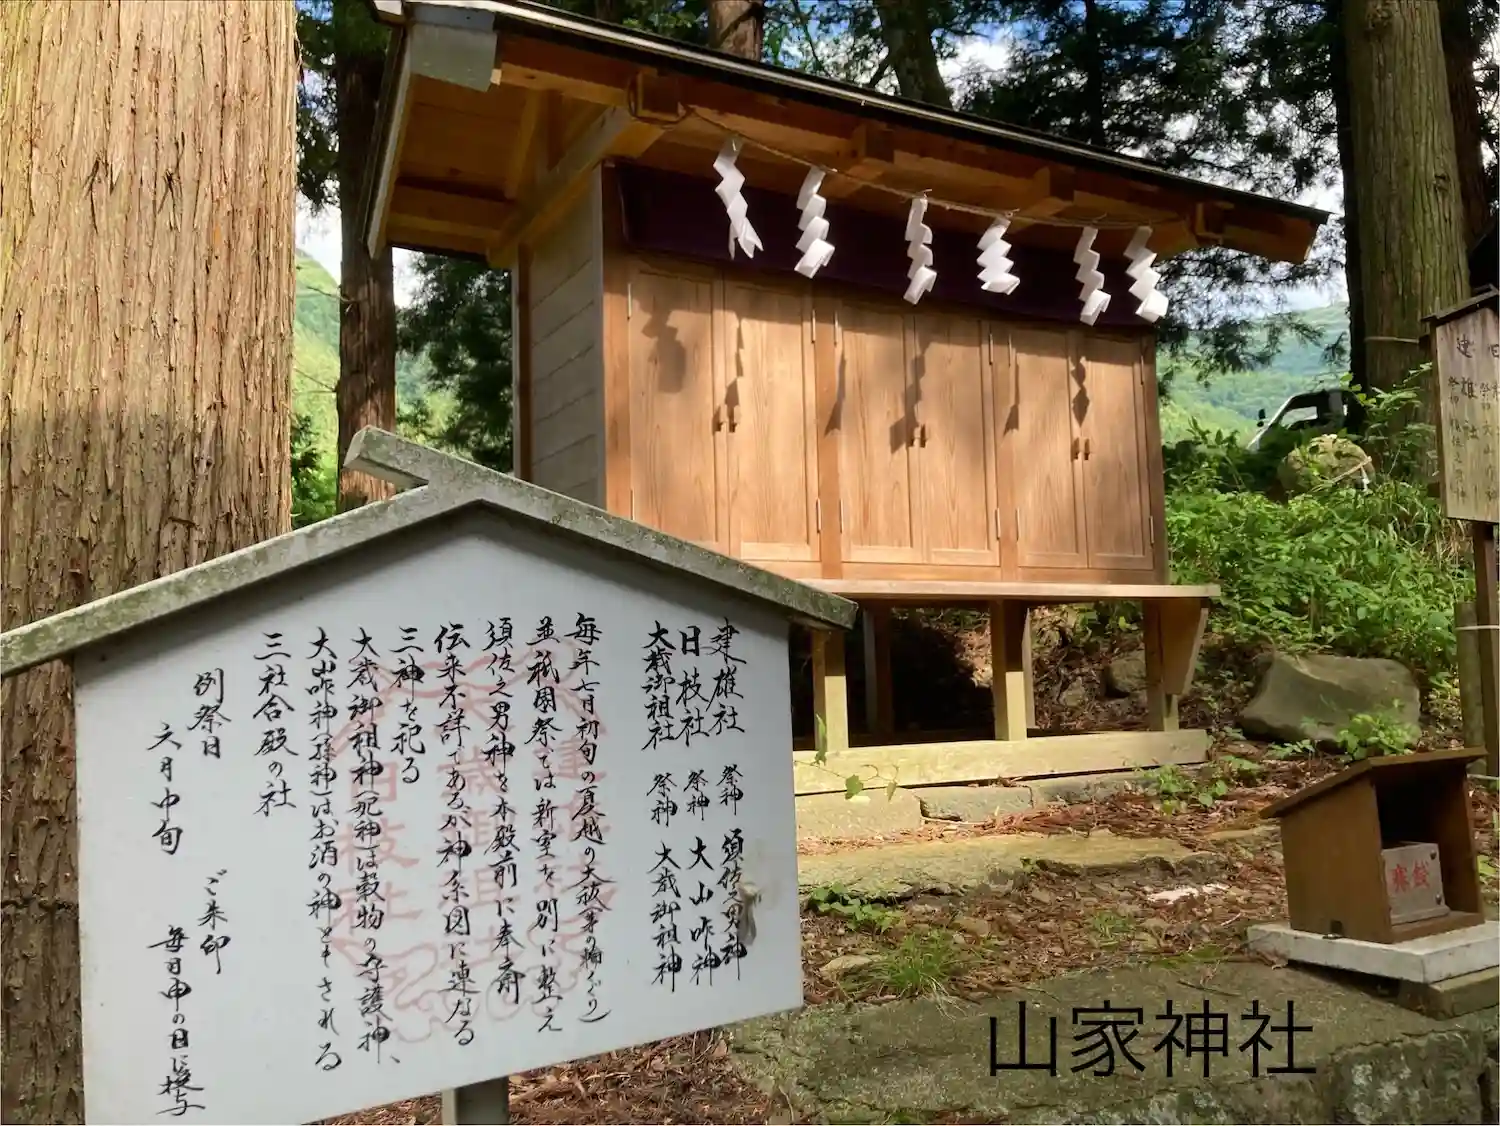 建雄社 祭神 須佐之男神
日枝社 祭神 大山咋神
大歳御祖社 祭神 大歳御祖神
毎年七月初旬の夏越の大祓(茅の輪くぐり)
並祇園祭では新室を別に整え
須佐之男神を本殿前に奉斎
伝来不詳であるが神系図に連なる
三神を祀る
大歳御祖神(祀神)は穀物の守護神、
大山咋神(孫神)はお酒の神とされる
三社合殿の社
例祭日
六月中旬
ご朱印
毎日申の日に授与
建雄社
日枝社
賽銭
山家神社